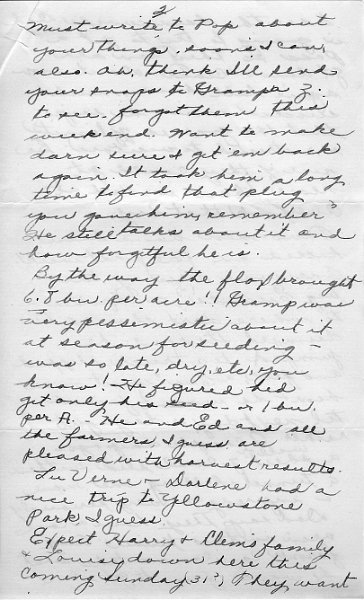 2
Must write to Pop about
your things, soon's I can,
also. Oh, think I'll send
your snaps to Grampa Z.
to see. forgot them this
week end. Want to make
darn sure I get 'em back
again. It took him a long
time to find that plug
you gave him, remember?
He still talks about it and
how forgetful he is.
By the way the flax brought
6.8 bu. per acre!! Gramp was
very pessemistic about it
at season for seeding -
was so late, dry, etc, you
know! - He figured he'd
get only his seed - or 1 bu.
per A. - He and Ed and all
the farmers I guess are
pleased with harvest results.
LuVerne + Darlene had a
nice trip to Yellowstone
Park, I guess.
Expect Harry + Clem's family
+ Louise down here this
coming Sunday, 31st, They want